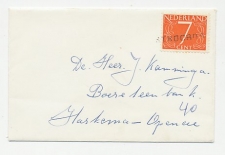 NEDERLAND
7
CENT
De Heer J Kamminga.
Boerestreek
40
Harkema-Opeinde